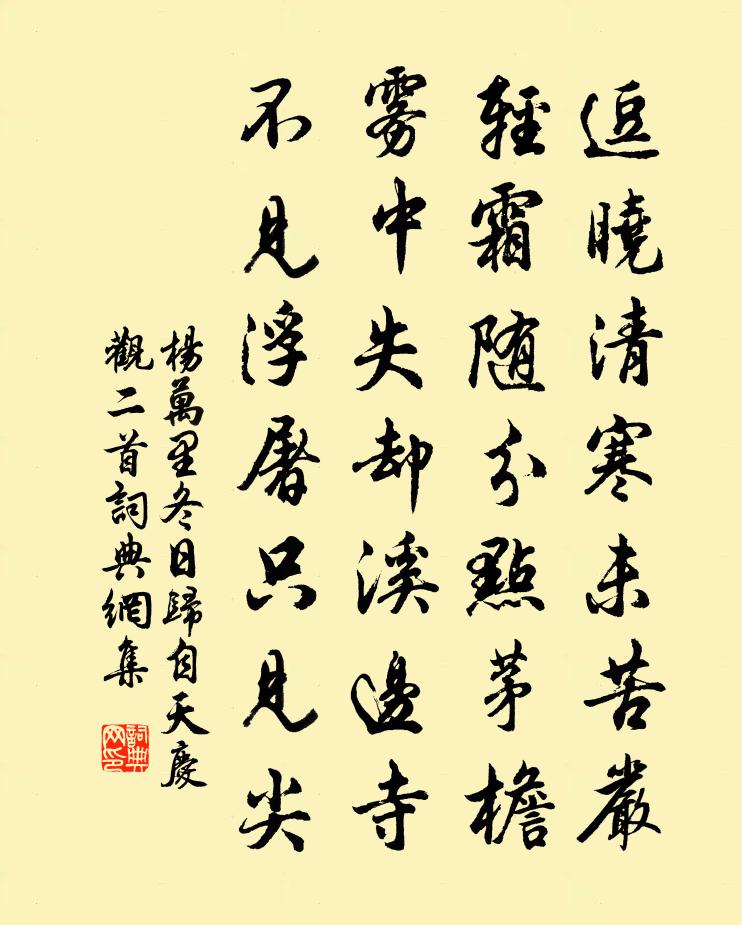 逗曉清寒未苦嚴
輕霜随分點茅檐
雾中失却溪邊寺
不見浮屠只見尖
楊萬里冬日歸自天慶
觀二首詞典網集
詞典
网印